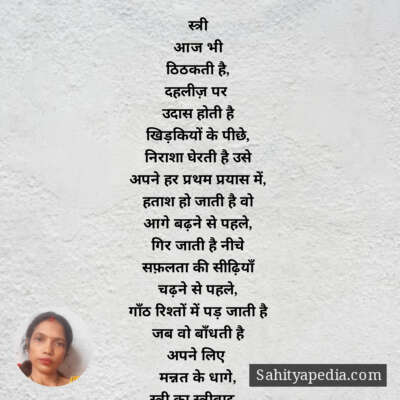 स्त्री
आज भी
ठिठकती है,
दहलीज़ पर
उदास होती है
खिड़कियों के पीछे,
निराशा घेरती है उसे
अपने हर प्रथम प्रयास में,
हताश हो जाती है वो
आगे बढ़ने से पहले,
गिर जाती है नीचे
सफ़लता की सीढ़ियाँ
चढ़ने से पहले,
गाँठ रिश्तों में पड़ जाती है
जब वो बाँधती है
अपने लिए
मन्नत के धागे,
स्त्री का स्त्रीवाद
Sahityapedia.com